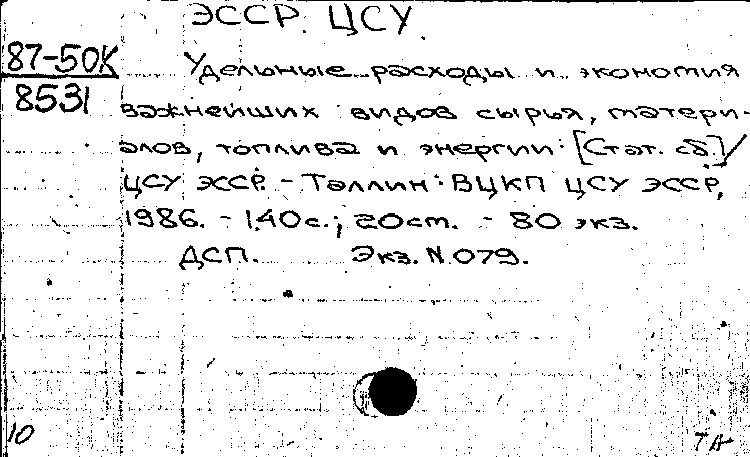 ЭССР. ЦСУ.
87-50К
8531
Удельные расходы и экономия
важнейших видов сырья, матери-
алов, топлива и энергии: [Стат. сб.]/
ЦСУ ЭССР. - Таллин: ВЦКП ЦСУ ЭССР,
1986. - 140с.; 20см. - 80 экз.
ДСП. Экз. N.079.
10